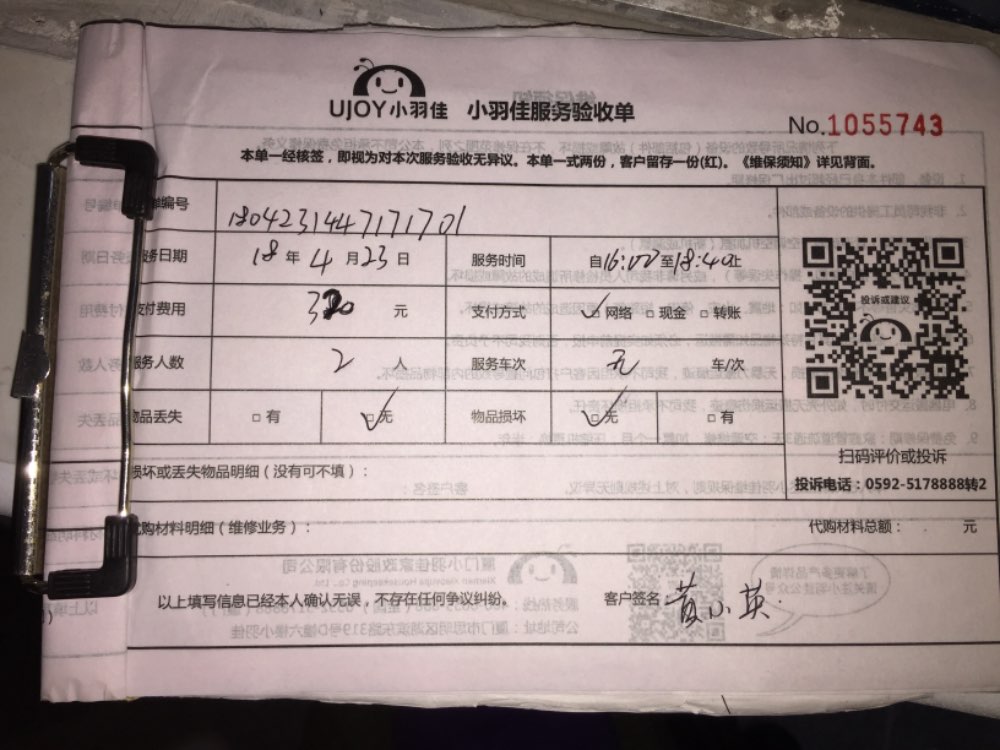 UJOY小羽佳 小羽佳服务验收单
No.1055743
本单一经核签，即视为对本次服务验收无异议。本单一式两份，客户留存一份(红)。《维保须知》详见背面。
单编号 1804231447171701
务日期 18 年 4 月 23 日 服务时间 自16:02至18:40止
支付费用 320 元 支付方式 网络 现金 转账
服务人数 2 人 服务车次 无 车/次
物品丢失 有 无 物品损坏 无 有
投诉或建议
扫码评价或投诉
投诉电话：0592-5178888转2
损坏或丢失物品明细（没有可不填）：
代购材料明细（维修业务）： 代购材料总额： 元
以上填写信息已经本人确认无误，不存在任何争议纠纷。 客户签名 黄小英